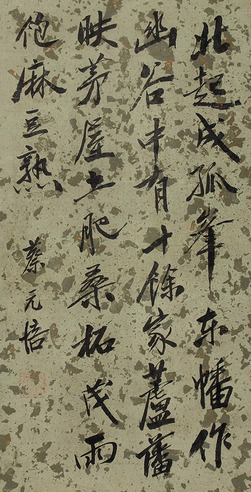 北起成孤峯东幡作
幽谷中有十餘家蘆藩
映茅屋土肥桑柘茂雨
饱麻豆熟
蔡元培